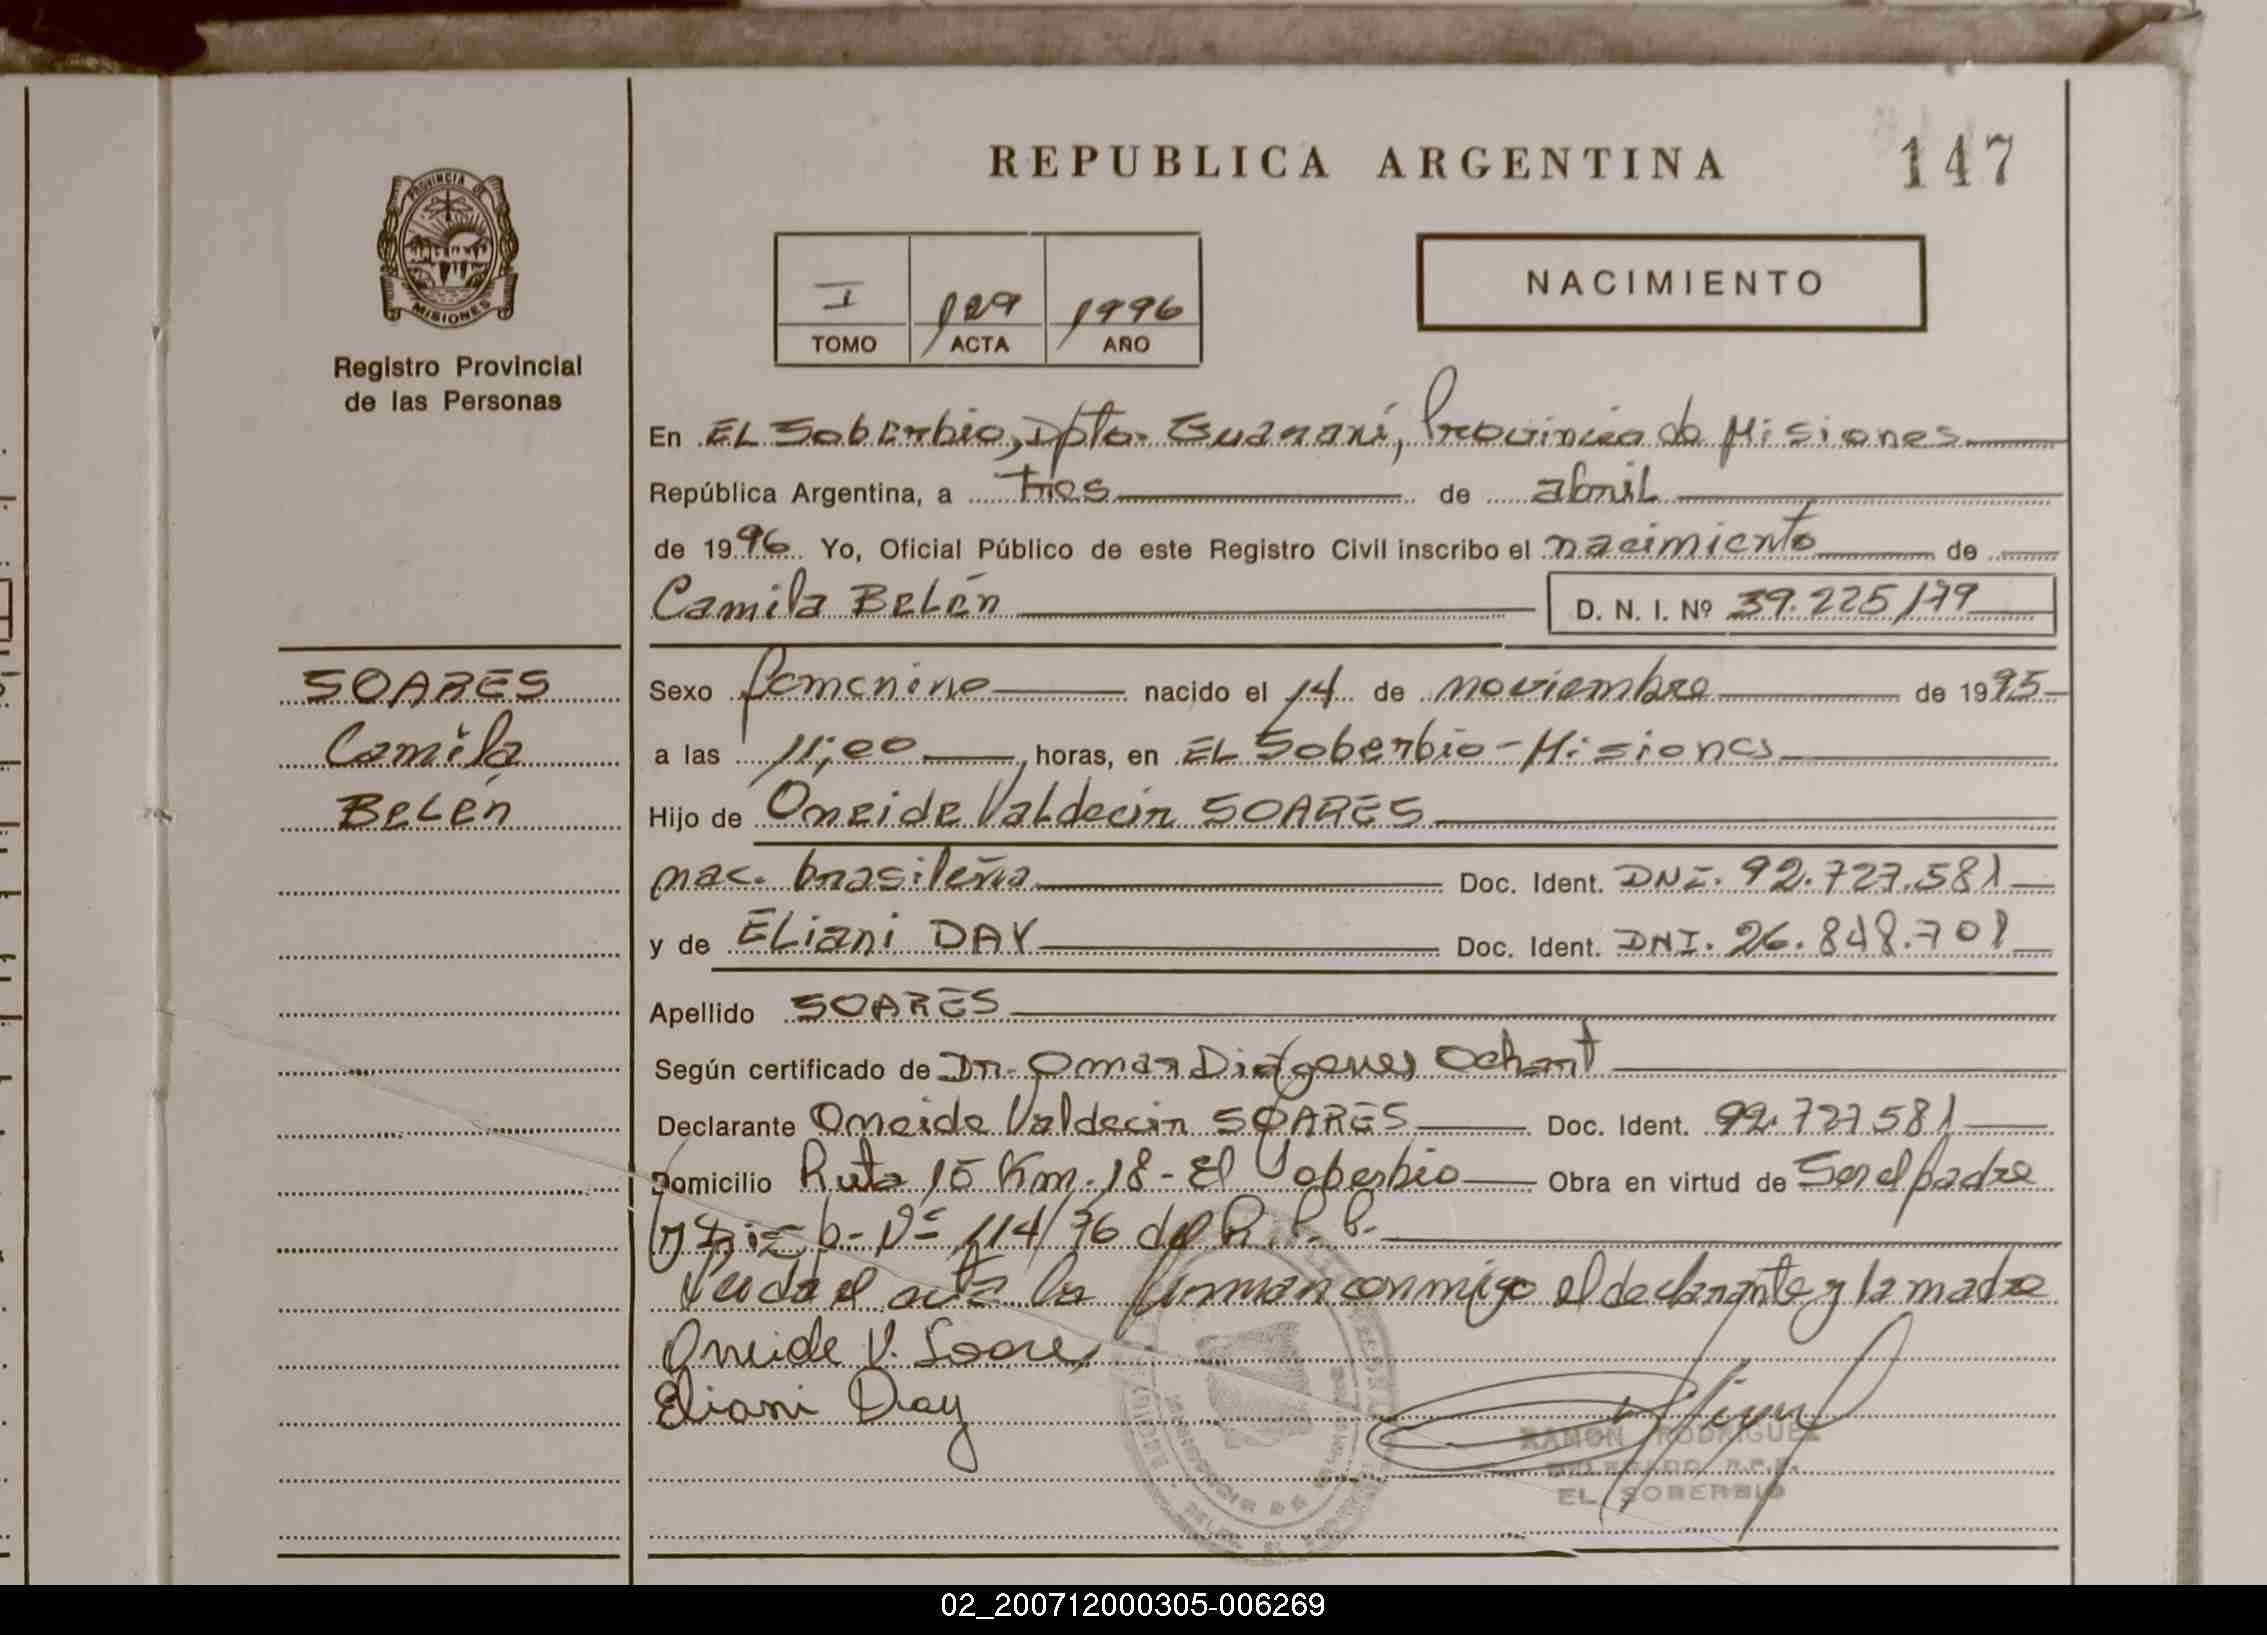 REPUBLICA ARGENTINA
147
PROVINCIA DE
MISIONES
Registro Provincial
de las Personas
I
129
1996
TOMO
ACTA
AÑO
NACIMIENTO
En EL Soberbio, Dpto. Guaraní, Provincia de Misiones
República Argentina, a tres de abril
de 1996 Yo, Oficial Público de este Registro Civil inscribo el nacimiento de
Camila BELén
D. N. I. Nº 39.225.179
SOARES
Camila
BELén
Sexo femenino nacido el 14 de noviembre de 1995
a las 11,00 horas, en EL Soberbio - Misiones
Hijo de Oneide Valdecir SOARES
nac. brasileña Doc. Ident. DNI. 92.727.581
y de ELiani DAY Doc. Ident. DNI. 26.848.701
Apellido SOARES
Según certificado de Dr. Omar Diógenes Ochant
Declarante Oneide Valdecir SOARES Doc. Ident. 92.727581
Domicilio Ruta 15 Km. 18 - El Soberbio Obra en virtud de Ser el padre
y Nº 114/76 del R. P. P.
el acta la firman conmigo el declarante y la madre
Oneide V. Soares
Eliani Day
RAMON RODRIGUEZ
DELEGADO R.P.P.
EL SOBERBIO
02_200712000305-006269